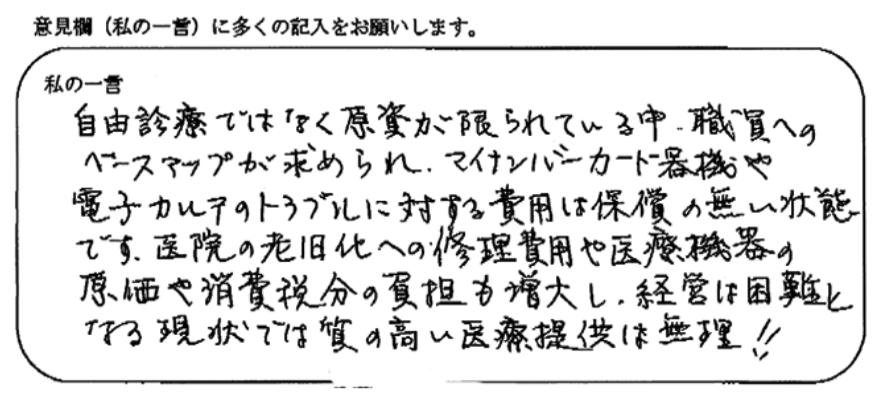 意見欄（私の一言）に多くの記入をお願いします。
私の一言
自由診療ではなく原資が限られている中、職員への
ベースアップが求められ、マイナンバーカード器機や
電子カルテのトラブルに対する費用は保償の無い状態
です。医院の老旧化への修理費用や医療機器の
原価や消費税分の負担も増大し、経営は困難と
なる現状では質の高い医療提供は無理!!